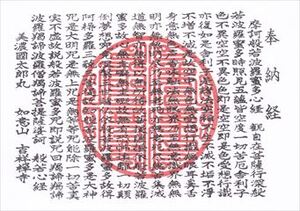 奉納経
摩訶般若波羅蜜多心経 観自在菩薩行深般
若波羅蜜多時照見五蘊皆空度一切苦厄舎利子
色不異空空不異色色即是空空即是色受想行識
亦復如是舎利子是諸法空相不生不滅不垢不浄
不増不減是故空中無色無受想行識無眼耳鼻舌
身意無色声香味触法無眼界乃至無意識界無無
明亦無無明尽乃至無老死亦無老死尽無苦集滅
道無智亦無得以無所得故菩提薩埵依般若波羅
蜜多故心無罣礙無罣礙故無有恐怖遠離一切顛
倒夢想究竟涅槃三世諸仏依般若波羅蜜多故得
阿耨多羅三藐三菩提故知般若波羅蜜多是大神
呪是大明呪是無上呪是無等等呪能除一切苦真
実不虚故説般若波羅蜜多呪即説呪曰羯諦羯諦
波羅羯諦波羅僧羯諦菩提薩婆訶 般若心経
美濃國次郎丸 如意山 吉祥禅寺